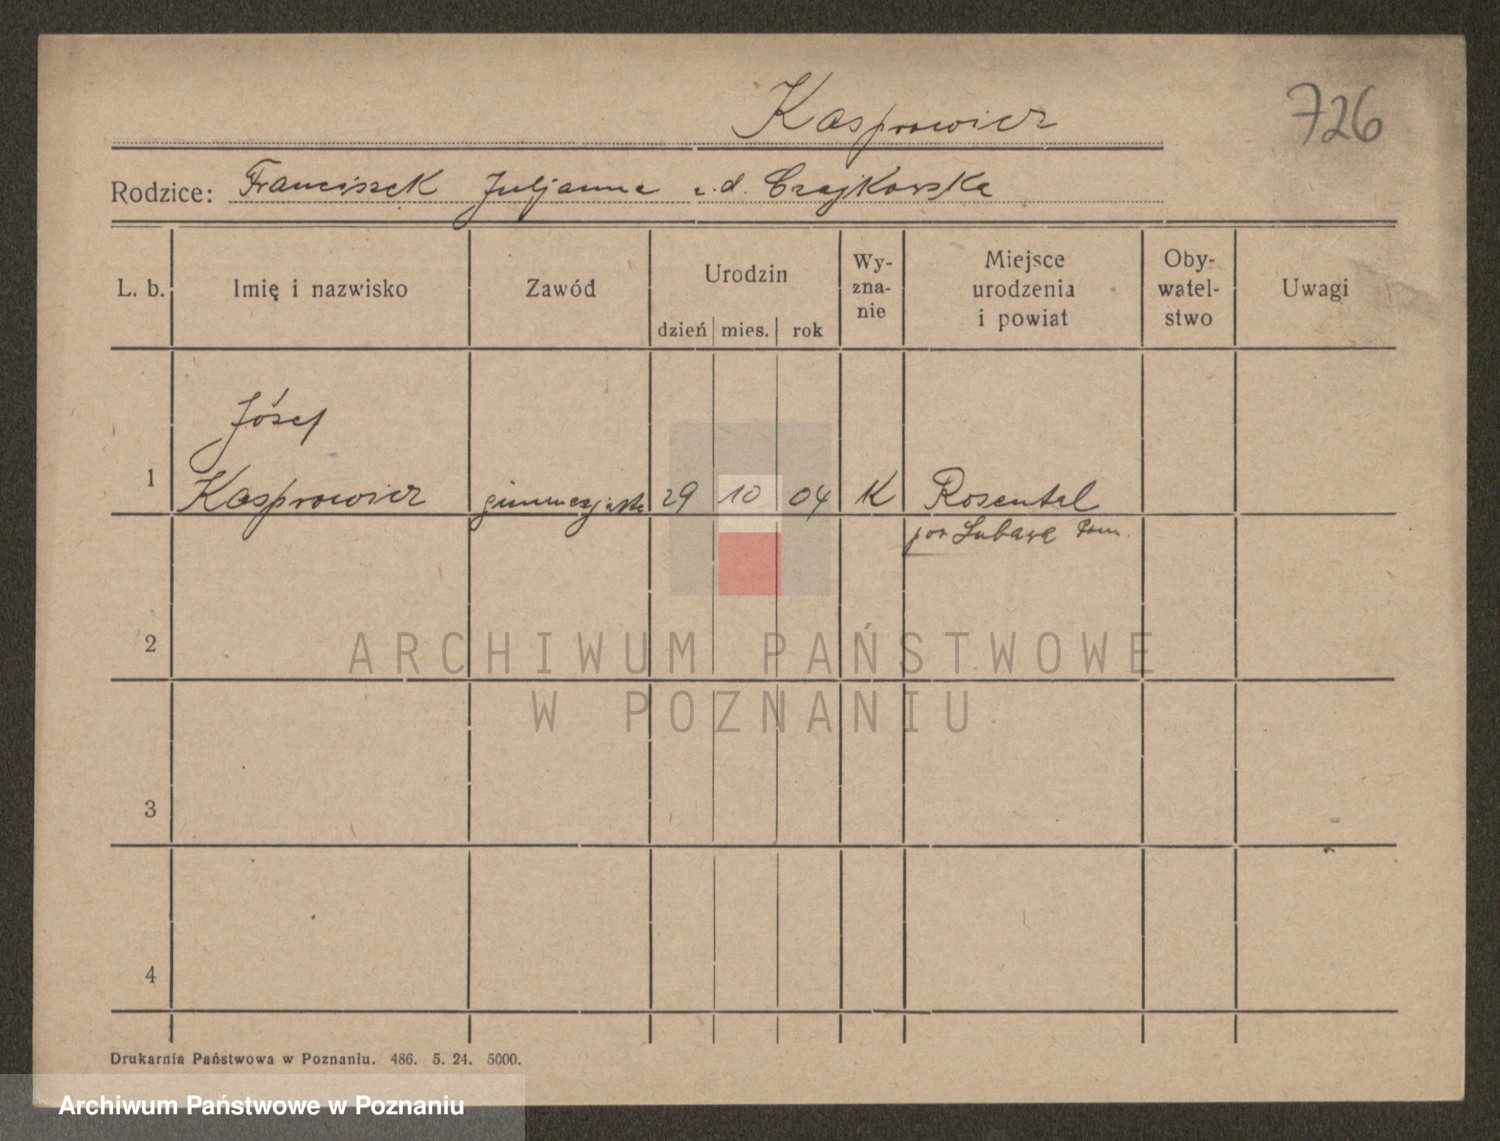 Kasprowicz
726
Rodzice: Franciszek Juljanna z.d. Czajkowska
L. b. Imię i nazwisko Zawód Urodzin dzień mies. rok Wy-zna-nie Miejsce urodzenia i powiat Oby-watel-stwo Uwagi
Józef
1 Kasprowicz 29 10 04 K Rosental
pow Lubawa Pom.
2
ARCHIWUM PAŃSTWOWE
W POZNANIU
3
4
Drukarnia Państwowa w Poznaniu. 486. 5. 24. 5000.
Archiwum Państwowe w Poznaniu